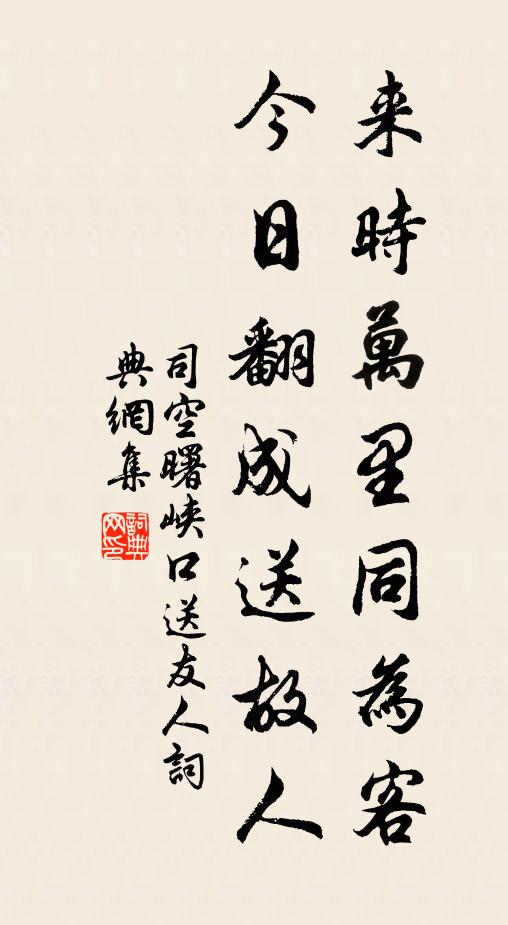 来時萬里同為客
今日翻成送故人
司空曙峡口送友人詞
典網集
詞典
网印